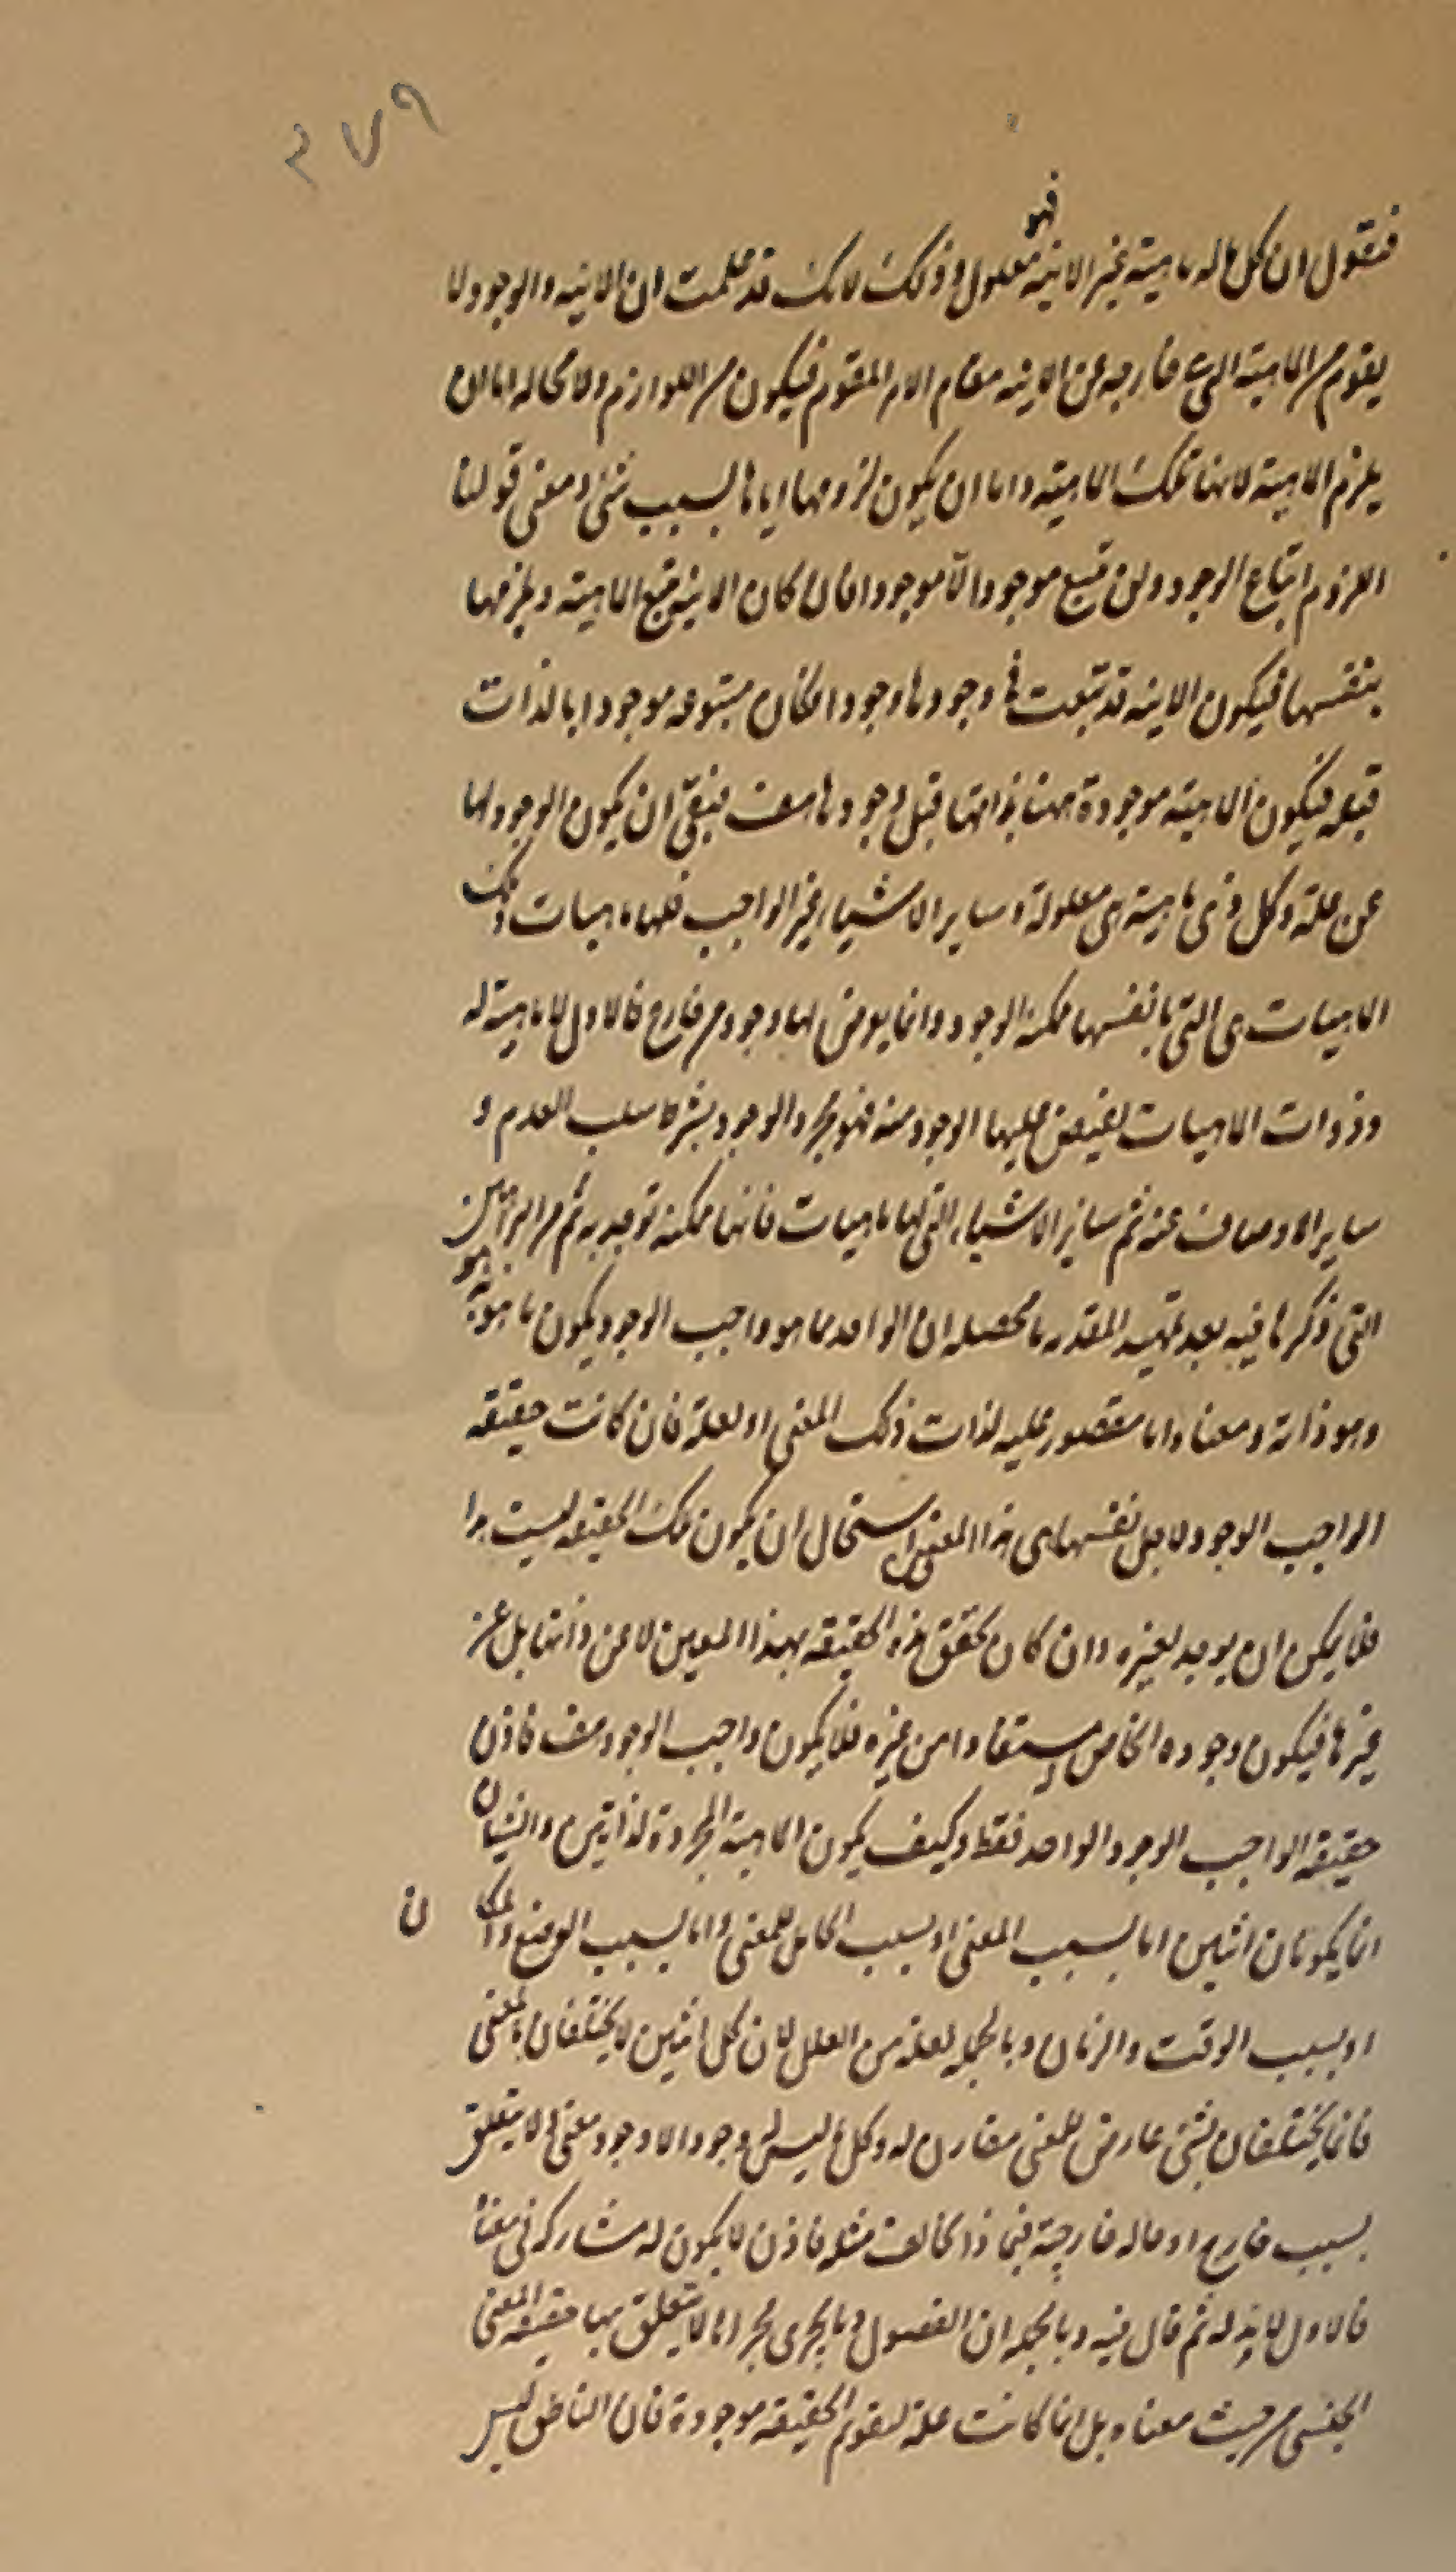 ٢٧٩
فهو
فنقول ان كل ما له ماهية غير الانية معلول و ذلك لانك قد علمت ان الانيه و الوجود لا
يقوم من الماهية التى خارجه عن الانيه مقام الامر المقوم فيكون من اللوازم ولا محاله اما ان
يلزم الماهية لانها تلك الماهية و اما ان يكون لزومها اياها بسبب شئ و معنى قولنا
اللزوم اتباع الوجود و لن يتبع موجود الا موجودا فان كان الانية تتبع الماهية و يلزمها
بنفسها فيكون الانيه قد تبعت فى وجودها وجودا فكان متبوعه موجودا بالذات
قبله فيكون الماهية موجودة بذاتها قبل وجودها هف فبقى ان يكون الوجود لها
عن علة و كل ذى ماهية هى معلولة و ساير الاشياء غير الواجب فلها ماهيات و تلك
الماهيات هى التى بانفسها ممكنة الوجود و انما يعرض لها وجود من خارج فالاول لا ماهية له
و ذوات الماهيات يفيض عليها الوجود منه فهو مجرد الوجود بشرط سلب العدم و
ساير الاوصاف عنه ثم ساير الاشياء التى لها ماهيات فانها ممكنة توجد به ثم من البراهين
التى ذكرها فيه بعد تمهيد المقدمه ما محصله ان الواحد مما هو واجب الوجود يكون ما هو به هو
و هو ذاته و معناه اما مقصور عليه لذات ذلك المعنى او لعلة فان كانت حقيقه
الواجب الوجود لاجل نفسها هى هذا المعين استحال ان يكون تلك الحقيقه ليست هذا
فلا يمكن ان يوجد لغيره و ان كان تحقق هذه الحقيقه بهذا المعين لا عن ذاتها بل عن
غيرها فيكون وجوده الخاص مستفادا من غيره فلا يكون واجب الوجود هف فاذن
حقيقه الواجب الوجود الواحد فقط و كيف يكون الماهية المجردة لذاتين و الشيئان
انما يكونان اثنين اما بسبب المعنى او بسبب الحامل للمعنى و اما بسبب الوضع و المكان
او بسبب الوقت و الزمان و بالجمله لعلة من العلل لان كل اثنين لا يختلفان بالمعنى
فانما يختلفان بشئ عارض للمعنى مقارن له و كل ما ليس له وجود الا وجود معنى لا يتعلق
بسبب خارج او حاله خارجية فبما ذا يخالف مثله فاذن لا يكون له مشارك فى معناه
فالاول لا ند له ثم قال فيه و بالجمله ان الفصول و ما يجرى مجراها لا يتعلق بها حقيقه المعنى
الجنسى من حيث معناه بل انما كانت علة لتقوم الحقيقه موجودة فان الناطق ليس